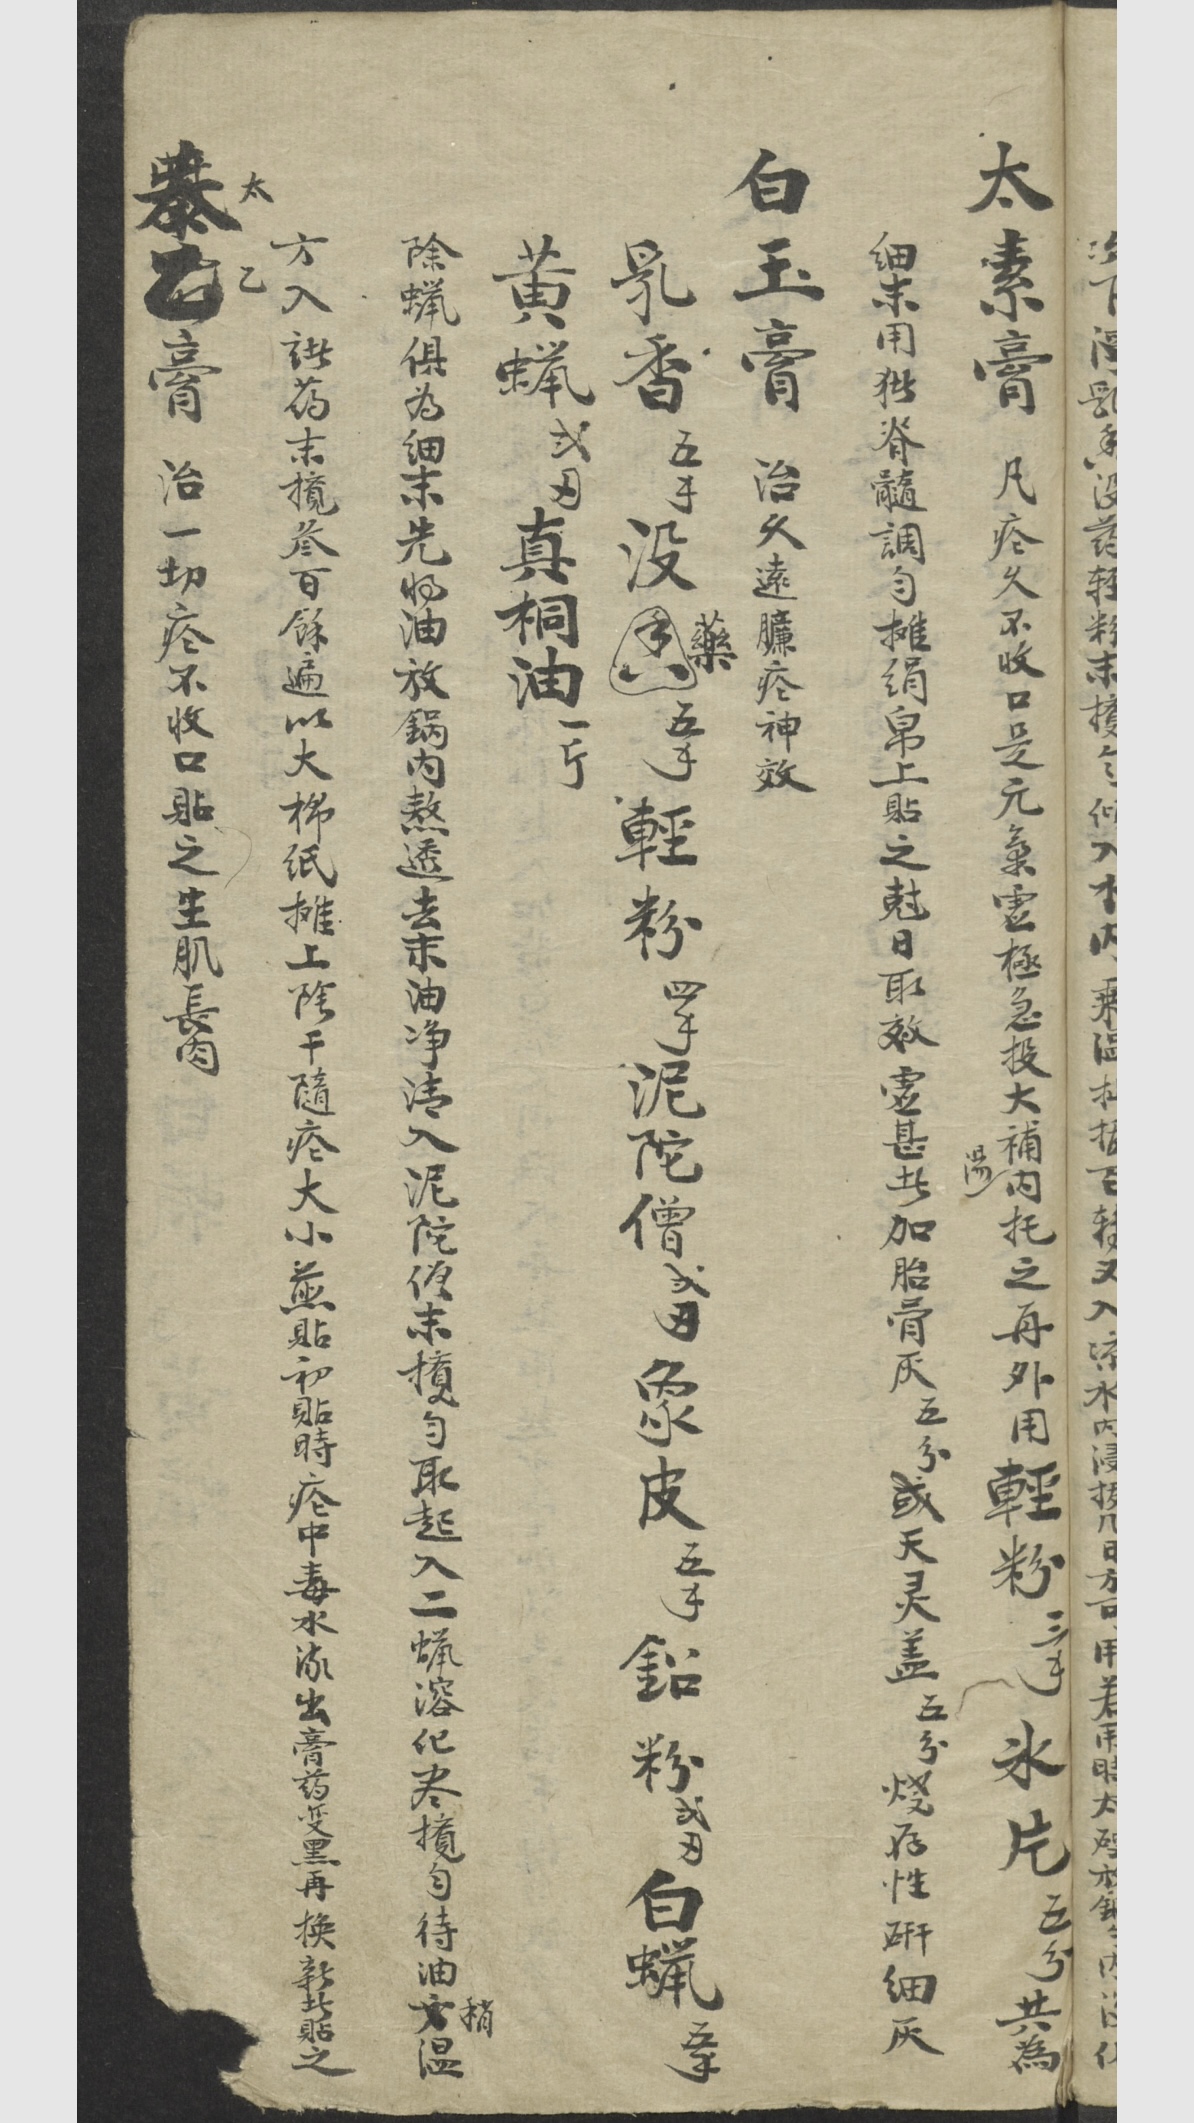 太素膏 凡疮久不收口是元氣虛極急投大補湯内托之再外用輕粉三錢氷片五分共為
細末用猪脊髓調勻摊绢帛上貼之尅日取效虛甚此加胎骨灰五分或天灵盖五分燒存性研細灰
白玉膏 治久遠臁疮神效
乳香五錢没藥五錢輕粉四錢泥陀僧弍両象皮五錢鉛粉弍両白蝋五錢
黄蝋弍両真桐油一斤
除蝋俱为细末先将油放鍋内熬透去末油净清入泥陀僧末攪勻取起入二蝋溶化尽攪勻待油稍温
方入諸药末攪叁百餘遍以大棉纸摊上陰干隨疮大小煎貼初貼時疮中毒水流出膏药变黑再换新此貼之
太乙膏 治一切疮不收口貼之生肌長肉